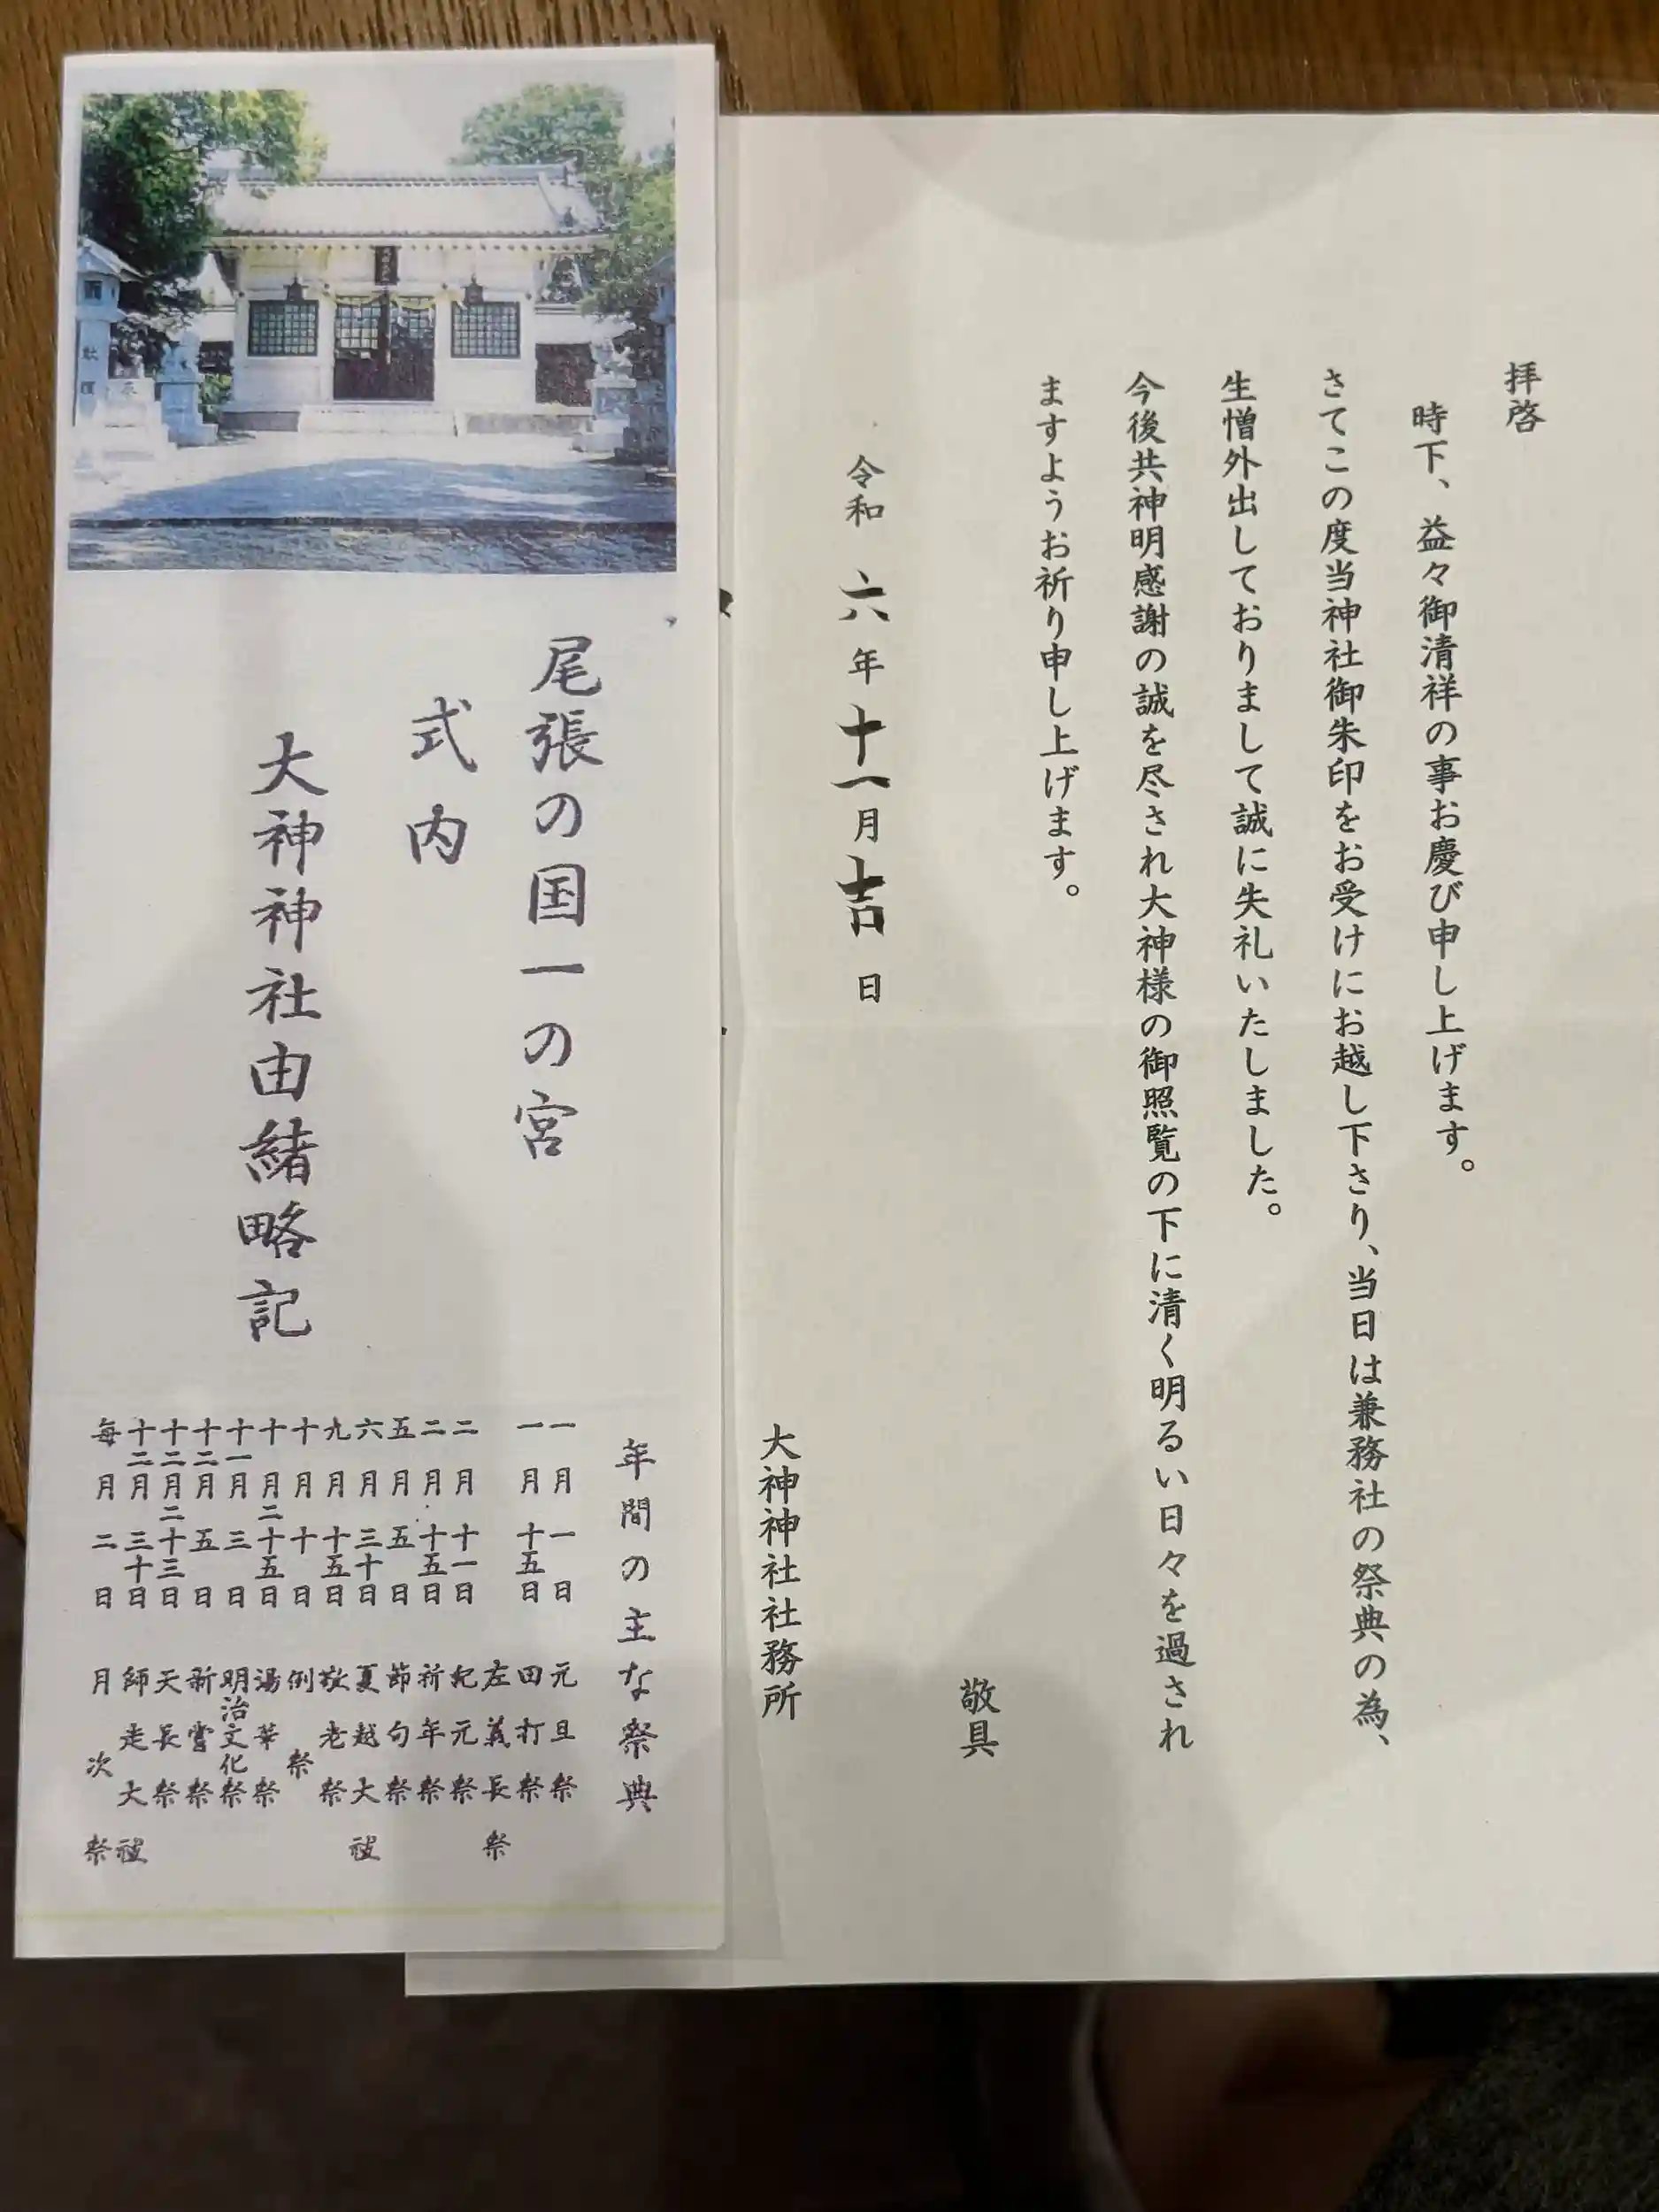 拝啓
時下、益々御清祥の事お慶び申し上げます。
さてこの度当神社御朱印をお受けにお越し下さり、当日は兼務社の祭典の為、
生憎外出しておりまして誠に失礼いたしました。
今後共神明感謝の誠を尽され大神様の御照覧の下に清く明るい日々を過され
ますようお祈り申し上げます。
敬具
令和六年十一月吉日
大神神社社務所
尾張の国一の宮
式内
大神神社由緒略記
年間の主な祭典
一月一日 元旦祭
一月十五日 田打祭
左義長祭
二月十一日 紀元祭
二月十五日 祈年祭
五月五日 節句祭
六月三十日 夏越大祓
九月十五日 敬老祭
十月十日 例祭
十月二十五日 湯華祭
十一月三日 明治文化祭
十二月五日 新嘗祭
十二月二十三日 天長祭
十二月三十日 師走大祓
毎月二日 月次祭